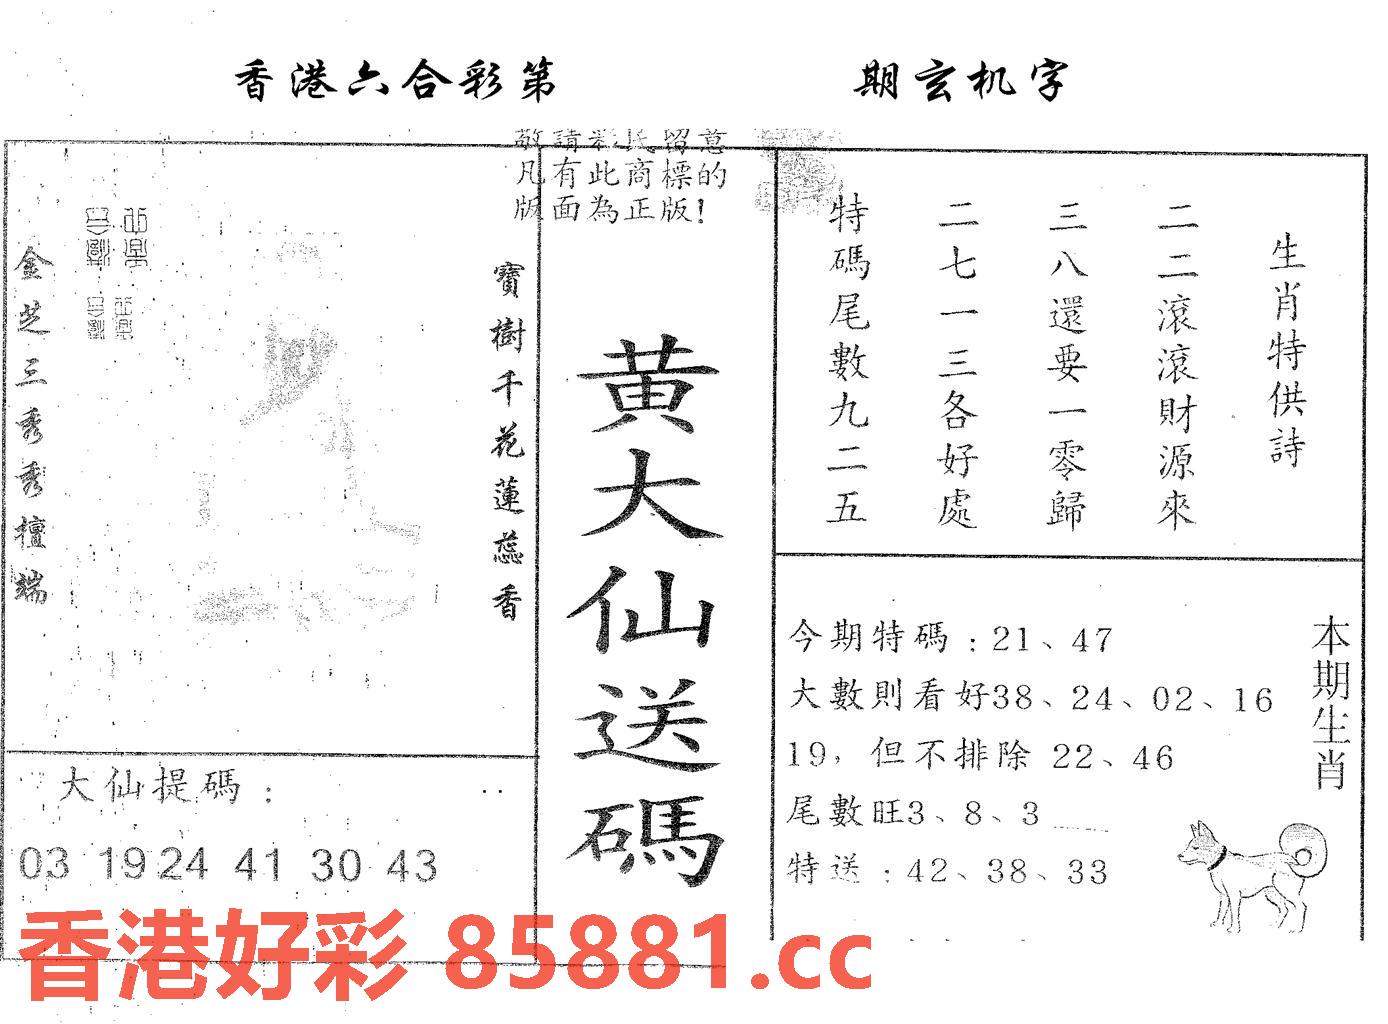 香港六合彩第 期玄机字
敬請彩民留意
凡有此商標的
版面為正版!
生肖特供詩
二二滾滾財源來
三八還要一零歸
二七一三各好處
特碼尾數九二五
黄大仙送碼
寶樹千花蓮蕊香
金芝三秀秀檀端
大仙提碼：
03 19 24 41 30 43
本期生肖
今期特碼：21、47
大數則看好38、24、02、16
19，但不排除 22、46
尾數旺3、8、3
特送：42、38、33
香港好彩 85881.cc